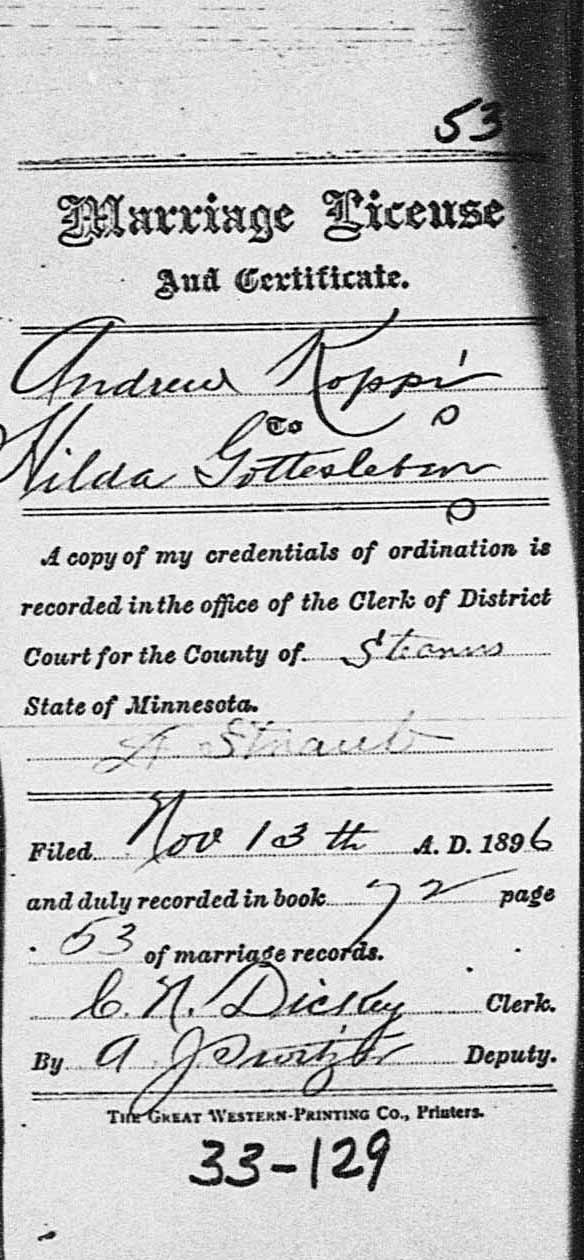 53
Marriage License
And Certificate.
Andrew Koppi
To
Hilda Gottesleben
A copy of my credentials of ordination is
recorded in the office of the Clerk of District
Court for the County of Stearns
State of Minnesota.
A. Straub
Filed Nov 13th A. D. 1896
and duly recorded in book 72 page
53 of marriage records.
C. N. Dickey Clerk.
By A J Deputy.
THE GREAT WESTERN-PRINTING CO., Printers.
33-129